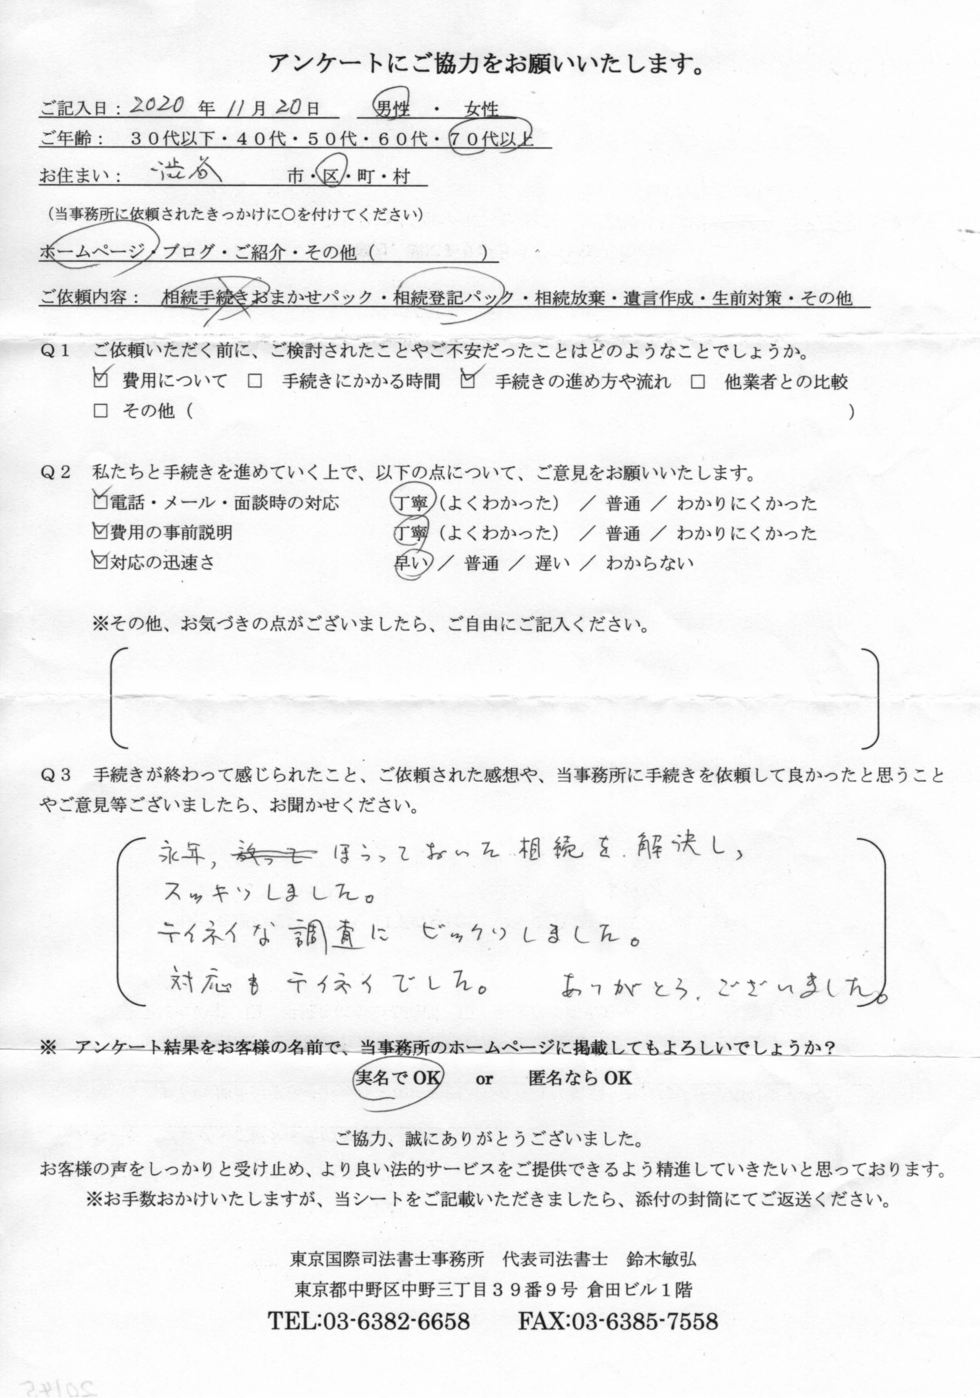 アンケートにご協力をお願いいたします。
ご記入日：2020 年 11月 20日　男性 ・ 女性
ご年齢：　３０代以下・４０代・５０代・６０代・７０代以上
お住まい：　渋谷　市・区・町・村
（当事務所に依頼されたきっかけに○を付けてください）
ホームページ・ブログ・ご紹介・その他（　　　　　　）
ご依頼内容：　相続手続きおまかせパック・相続登記パック・相続放棄・遺言作成・生前対策・その他
Ｑ１　ご依頼いただく前に、ご検討されたことやご不安だったことはどのようなことでしょうか。
☑ 費用について　□ 手続きにかかる時間　☑ 手続きの進め方や流れ　□ 他業者との比較
□ その他（　　　　　　　　　　　　　　　　　　）
Ｑ２　私たちと手続きを進めていく上で、以下の点について、ご意見をお願いいたします。
☑電話・メール・面談時の対応　丁寧（よくわかった） ／ 普通 ／ わかりにくかった
☑費用の事前説明　丁寧（よくわかった） ／ 普通 ／ わかりにくかった
☑対応の迅速さ　早い ／ 普通 ／ 遅い ／ わからない
※その他、お気づきの点がございましたら、ご自由にご記入ください。
Ｑ３　手続きが終わって感じられたこと、ご依頼された感想や、当事務所に手続きを依頼して良かったと思うこと
やご意見等ございましたら、お聞かせください。
永年, 放って ほうっておいた 相続を 解決し,
スッキリしました。
テイネイな 調査に ビックリしました。
対応も テイネイでした。　ありがとう、ございました。
※　アンケート結果をお客様の名前で、当事務所のホームページに掲載してもよろしいでしょうか？
実名で OK　or　匿名なら OK
ご協力、誠にありがとうございました。
お客様の声をしっかりと受け止め、より良い法的サービスをご提供できるよう精進していきたいと思っております。
※お手数おかけいたしますが、当シートをご記載いただきましたら、添付の封筒にてご返送ください。
東京国際司法書士事務所　代表司法書士　鈴木敏弘
東京都中野区中野三丁目３９番９号 倉田ビル１階
TEL:03-6382-6658　FAX:03-6385-7558